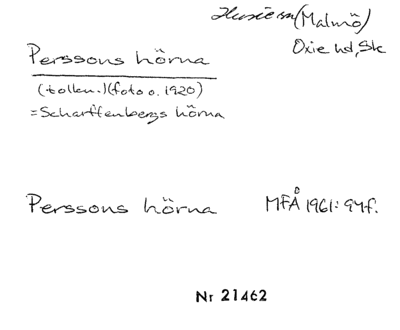 Husie sn (Malmö)
Oxie hd, Sk
Perssons hörna
(tolkn.) (foto o. 1920)
=Scharffenbergs hörna
Perssons hörna MFÅ 1961: 94f.
Nr 21462